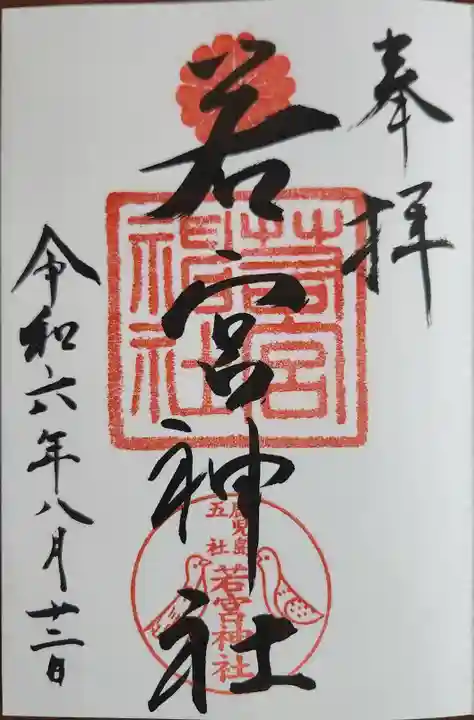 奉拝
若宮神社
令和六年八月廿三日
若宮神社
鹿児島
五社
若宮神社